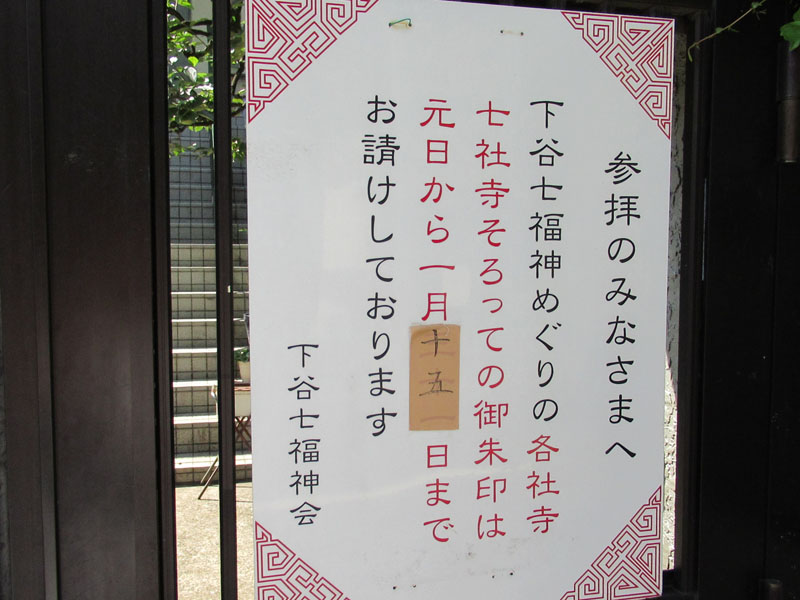 参拝のみなさまへ
下谷七福神めぐりの各社寺
七社寺そろっての御朱印は
元日から一月十五日まで
お請けしております
下谷七福神会